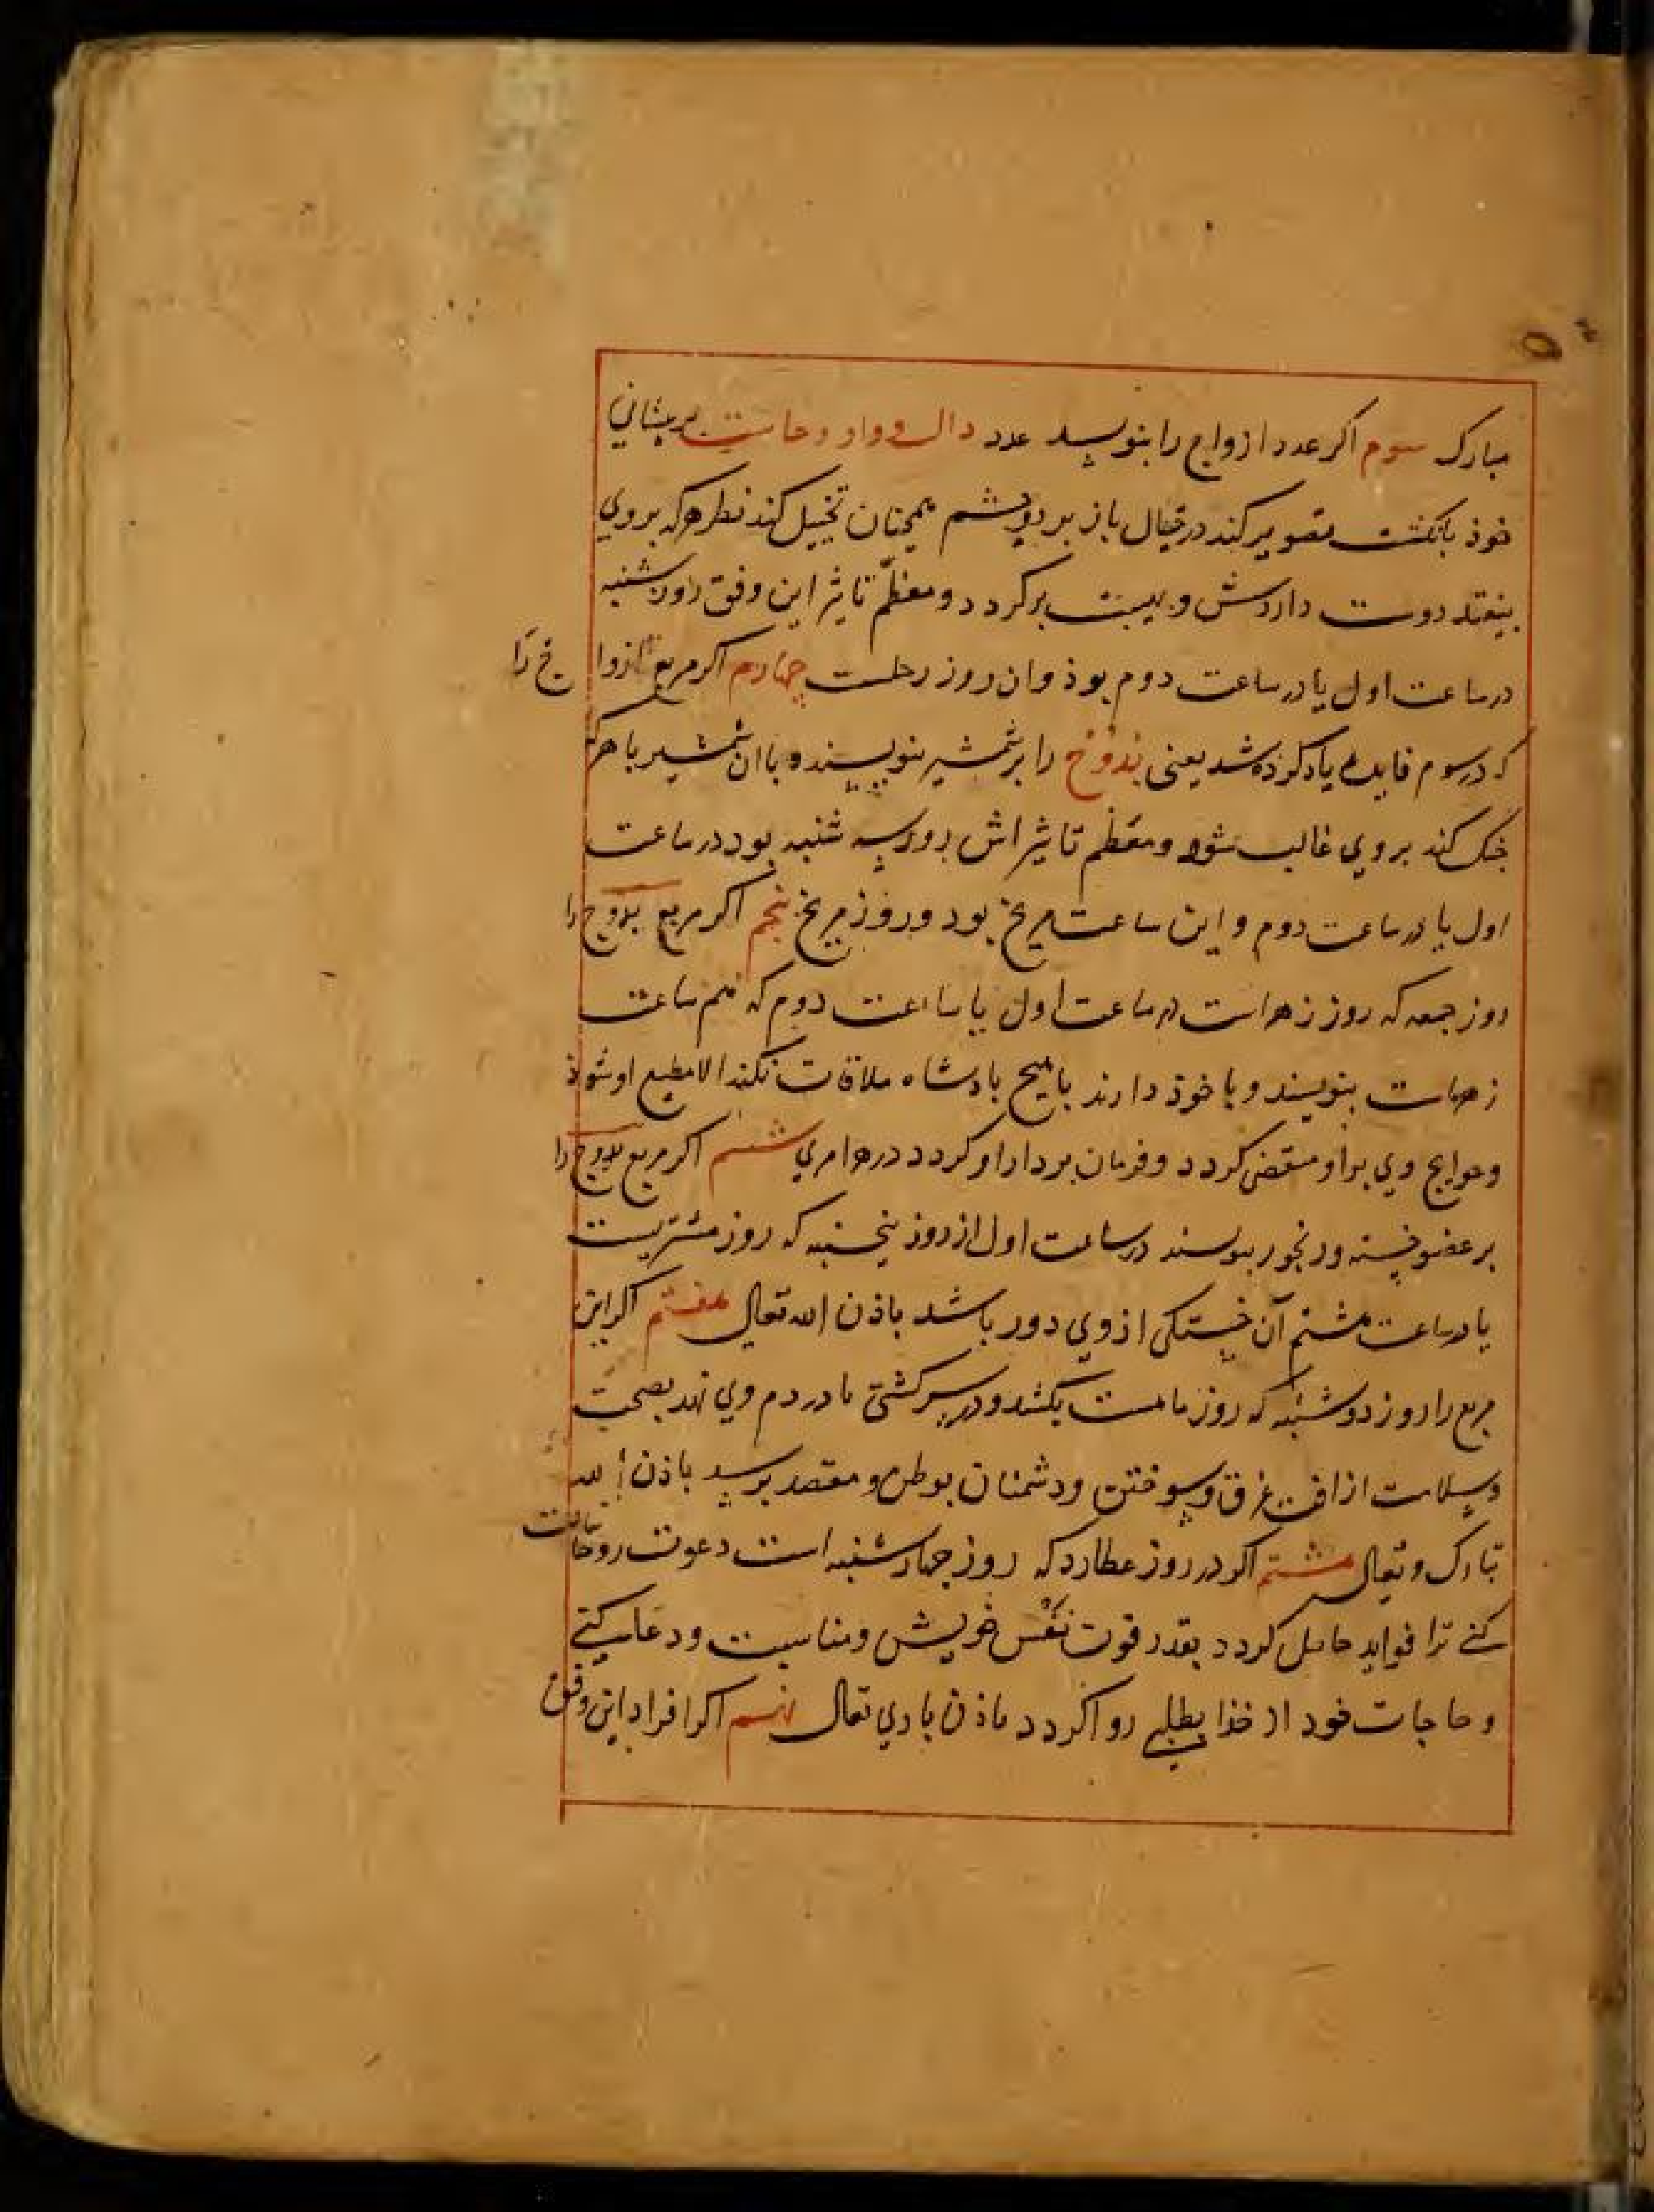 مبارک سوم اکر عدد ازواج را بنویسد عدد دال و واو و حاست بر پیشانی
خوذ بانکشت تصویر کند در خیال باز بر دو چشم همچنان تخییل کند نظر هرکه بروی
بیفتد دوست داردش و بر کردد و معظم تاثیر این وفق روز شنبه
در ساعت اول یا در ساعت دوم بوذ وان روز زحلست چهارم اکر مربع ازواج را
که در سوم فایده یاد کرده شد یعنی بدوح را بر شمشیر بنویسند و با ان شمشیر با هرکه
جنک کند بروی غالب شود و معظم تاثیراش روز سه شنبه بود در ساعت
اول یا در ساعت دوم و این ساعت مریخ بود و روز مریخ پنجم اکر مربع بدوح را
روز جمعه که روز زهراست در ساعت اول یا ساعت دوم که هم ساعت
زهراست بنویسند و با خوذ دارند با هیچ بادشاه ملاقات نکند الا مطیع او شوذ
و حوایج وی بر او منقضی کردد و فرمان بردار او کردد در هر امری ششم اکر مربع بدوح را
بر عضو خسته و رنجور بنویسند در ساعت اول از روز پنجشنبه که روز مشتریست
یا در ساعت هشتم آن خستکی از وی دور باشد باذن الله تعالی هفتم اکر این
مربع را روز دوشنبه که روز ماهست بکشد و در سر کشتی یا در دم وی نهد بصحت
و سلامت از افت غرق و سوختن و دشمنان بوطن و مقصد برسد باذن الله
تبارک و تعالی هشتم اکر در روز عطارد که روز چهارشنبه است دعوت روحانیت
کنی ترا فواید حاصل کردد بقدر قوت نفس خویش و مناسبت و دعا کنی
و حاجات خود از خذا بطلبی روا کردد باذن باری تعالی نهم اکر افراد این وفق